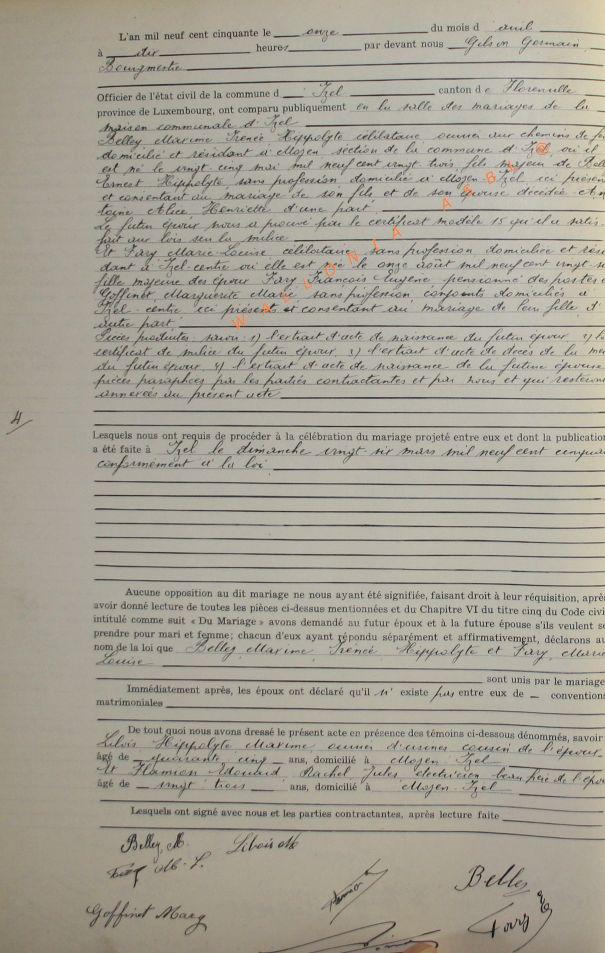 L'an mil neuf cent cinquante le onze du mois d avril
à dix heures par devant nous Gilson Germain
Bourgmestre
Officier de l'état civil de la commune d Izel canton de Florenville
province de Luxembourg, ont comparu publiquement en la salle des mariages de la
maison communale d'Izel
Belley Maxime Irénée Hippolyte célibataire ouvrier aux chemins de fer
domicilié et résidant à Moyen section de la commune d'Izel, où il
est né le vingt cinq mai mil neuf cent vingt trois, fils majeur de Bell
Ernest Hippolyte, sans profession domicilié à Moyen-Izel ici présen
et consentant au mariage de son fils et de son épouse décédée An
toine Alice Henriette d'une part
Le futur époux nous a prouvé par le certificat modèle 15 qu'il a satis
fait aux lois sur la milice
Et Fary Marie Louise célibataire sans profession domiciliée et rési
dant à Izel-centre où elle est née le onze août mil neuf cent vingt s
fille majeure des époux Fary François Eugène pensionné des postes e
Goffinet, Marguerite Marie, sans profession conjoints domiciliés à
Izel-centre ici présents et consentant au mariage de leur fille, d'
autre part.
Pièces produites savoir: 1) l'extrait d'acte de naissance du futur époux, 2) le
certificat de milice du futur époux, 3) l'extrait d'acte de décès de la mère
du futur époux, 4) l'extrait d'acte de naissance de la future épouse
pièces paraphées par les parties contractantes et par nous et qui resteron
annexées au présent acte
4
Lesquels nous ont requis de procéder à la célébration du mariage projeté entre eux et dont la publication
a été faite à Izel le dimanche vingt-six mars mil neuf cent cinquan
conformément à la loi
Aucune opposition au dit mariage ne nous ayant été signifiée, faisant droit à leur réquisition, aprè
avoir donné lecture de toutes les pièces ci-dessus mentionnées et du Chapitre VI du titre cinq du Code civi
intitulé comme suit « Du Mariage » avons demandé au futur époux et à la future épouse s'ils veulent se
prendre pour mari et femme; chacun d'eux ayant répondu séparément et affirmativement, déclarons au
nom de la loi que Belley, Maxime Irénée Hippolyte et Fary, Marie
Louise
sont unis par le mariage
Immédiatement après, les époux ont déclaré qu'il n'existe pas entre eux de convention
matrimoniales
De tout quoi nous avons dressé le présent acte en présence des témoins ci-dessous dénommés, savoir
Libois Hippolyte Maxime, ouvrier d'usines cousin de l'époux
âgé de quarante cinq ans, domicilié à Moyen-Izel
Et Flamion Edouard, Rachel Jules, électricien beau frère de l'épou
âgé de vingt trois ans, domicilié à Moyen-Izel
Lesquels ont signé avec nous et les parties contractantes, après lecture faite
Belley M. Libois M
Fary M-L.
Belley
Goffinet Marg
Fary E
WALLONIA ASBL